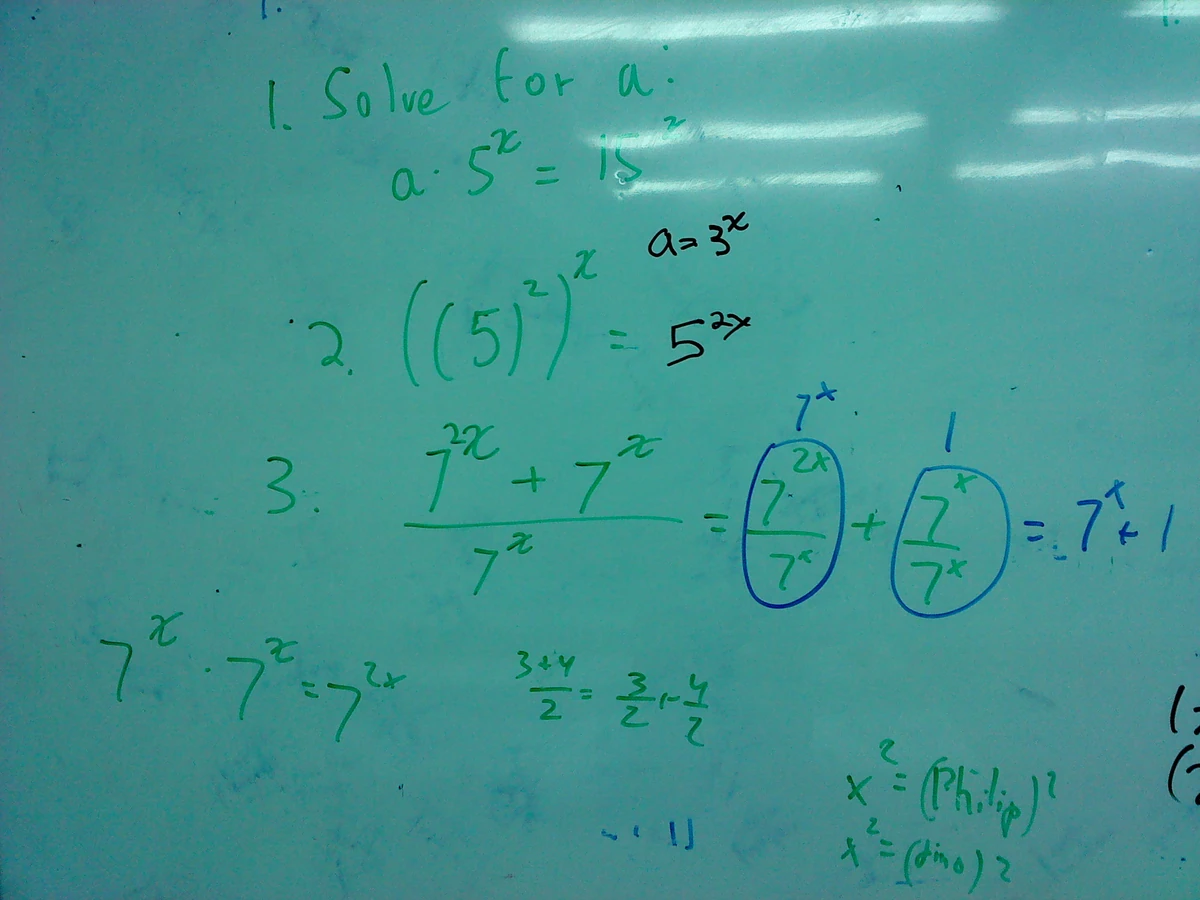 1. Solve for a:
a · 5^x = 15^x
a = 3^x
2. ((5)^2)^x = 5^2x
7^x 1
3. (7^2x + 7^x)/7^x = 7^2x/7^x + 7^x/7^x = 7^x + 1
7^x · 7^x = 7^2x
(3+4)/2 = 3/2 + 4/2
x^2 = (Philip)^2
x^2 = (dino)^2